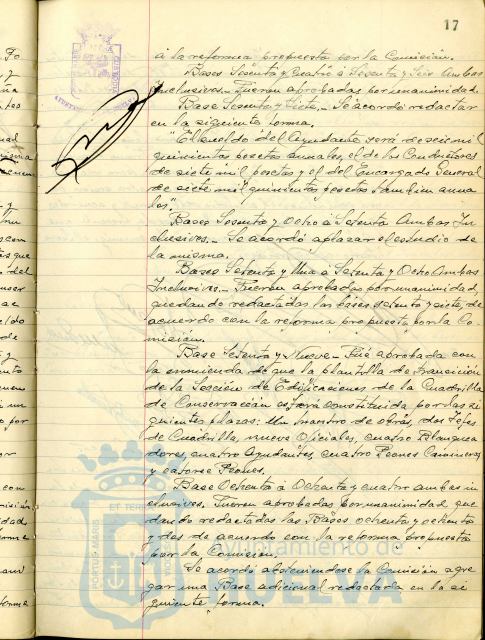 17
á la reforma propuesta por la Comisión.
Bases Sesenta y Cuatro á Sesenta y Seis Ambas
Inclusives.- Fueron aprobadas por unanimidad.
Base Sesenta y Siete.- Se acordó redactar
en la siguiente forma.
"El sueldo del Ayudante será de seis mil
quinientas pesetas anuales, el de los Conductores
de siete mil pesetas y el del Encargado General
de siete mil quinientas pesetas tambien anua
les".
Bases Sesenta y Ocho á Setenta Ambas In-
clusives.- Se acordó aplazar el estudio de
la misma.
Bases Setenta y Una á Setenta y Ocho Ambas
Inclusives.- Fueron aprobadas por unanimidad
quedando redactadas las bases setenta y siete, de
acuerdo con la reforma propuesta por la Co-
misión.
Base Setenta y Nueve.- Fué aprobada con
la enmienda de que la plantilla de
la Sección de Edificaciones de la Cuadrilla
de Conservación estará constituida por las si
guientes plazas: Un maestro de obras, dos Jefes
de Cuadrilla, nueve Oficiales, cuatro Blanquea
dores, cuatro Ayudantes, cuatro Peones Camineros
y catorce Peones.
Base Ochenta á Ochenta y cuatro ambas in
clusives. Fueron aprobadas por unanimidad que
dando redactadas las Bases ochenta y ochenta
y dos de acuerdo con la reforma propuesta
por la Comisión.
Se acordó absteniendose la Comisión agre
gar una Base adicional redactada en la si
guiente forma.
Ayuntamiento de
HUELVA
PORTUS MARIS
ET TERRAE